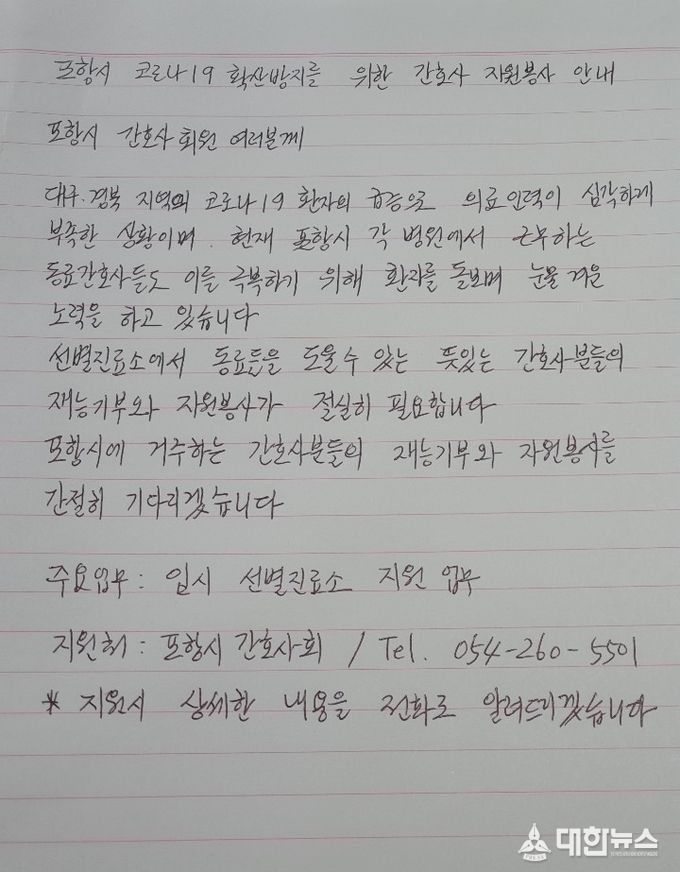 포항시 코로나19 확산방지를 위한 간호사 자원봉사 안내
포항시 간호사회원 여러분께
대구·경북 지역의 코로나19 환자의 급증으로 의료인력이 심각하게
부족한 상황이며. 현재 포항시 각 병원에서 근무하는
동료간호사들도 이를 극복하기 위해 환자를 돌보며 눈물겨운
노력을 하고 있습니다
선별진료소에서 동료들을 도울수 있는 뜻있는 간호사분들의
재능기부와 자원봉사가 절실히 필요합니다
포항시에 거주하는 간호사분들의 재능기부와 자원봉사를
간절히 기다리겠습니다
주요업무 : 임시 선별진료소 지원 업무
지원처 : 포항시 간호사회 / Tel. 054-260-5501
* 지원시 상세한 내용을 전화로 알려드리겠습니다
대한뉴스